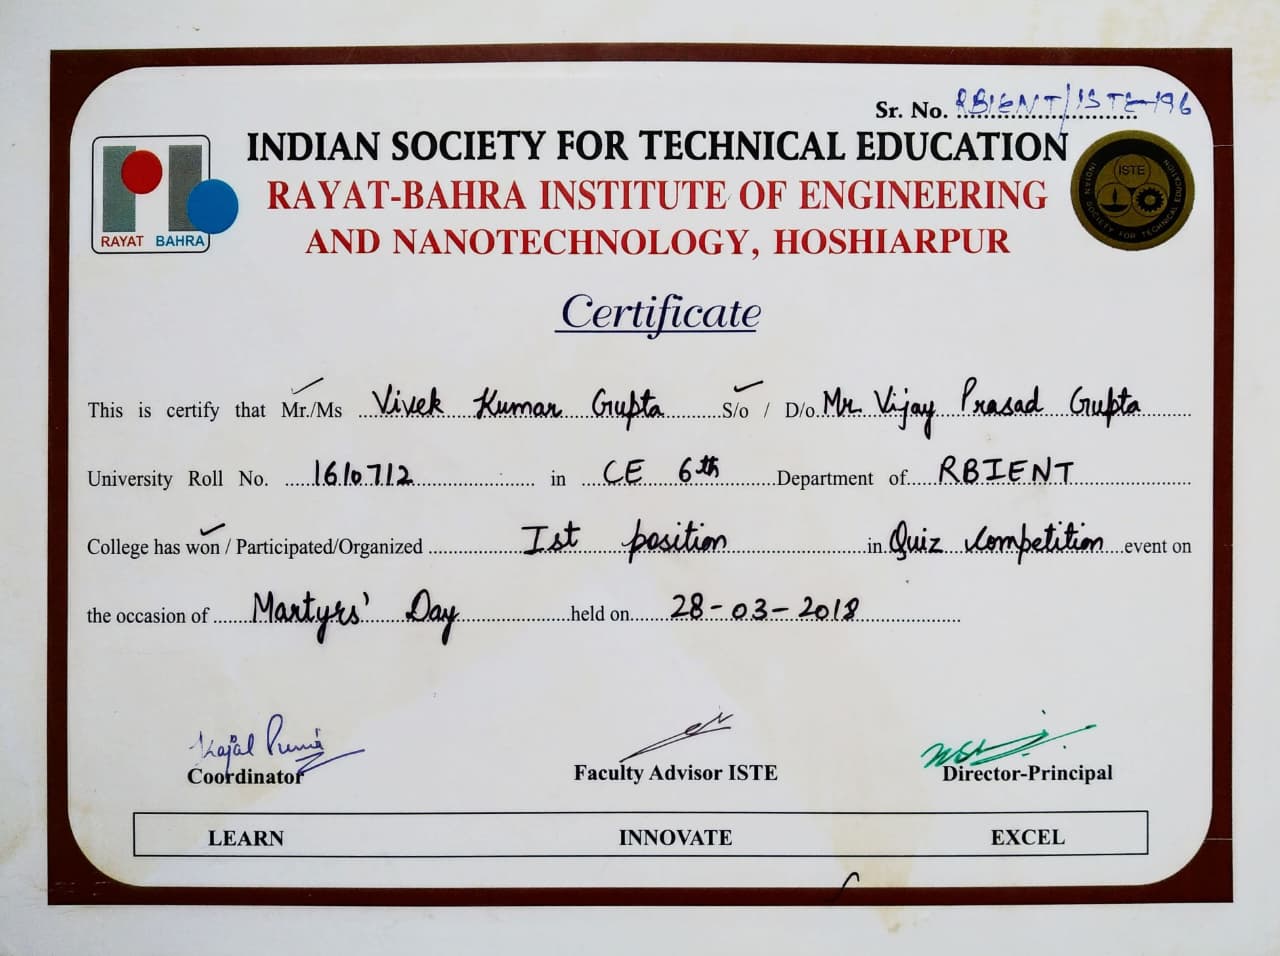 Sr. No. RBIENT/ISTE-196
INDIAN SOCIETY FOR TECHNICAL EDUCATION
RAYAT-BAHRA INSTITUTE OF ENGINEERING
AND NANOTECHNOLOGY, HOSHIARPUR
RAYAT BAHRA
ISTE
INDIAN SOCIETY FOR TECHNICAL EDUCATION
Certificate
This is certify that Mr./Ms Vivek Kumar Gupta S/o / D/o. Mr. Vijay Prasad Gupta
University Roll No. 1610712 in CE 6th Department of RBIENT
College has won / Participated/Organized Ist position in Quiz Competition event on
the occasion of Martyrs' Day held on 28-03-2018
Kajal
Coordinator
Faculty Advisor ISTE
Director-Principal
LEARN INNOVATE EXCEL